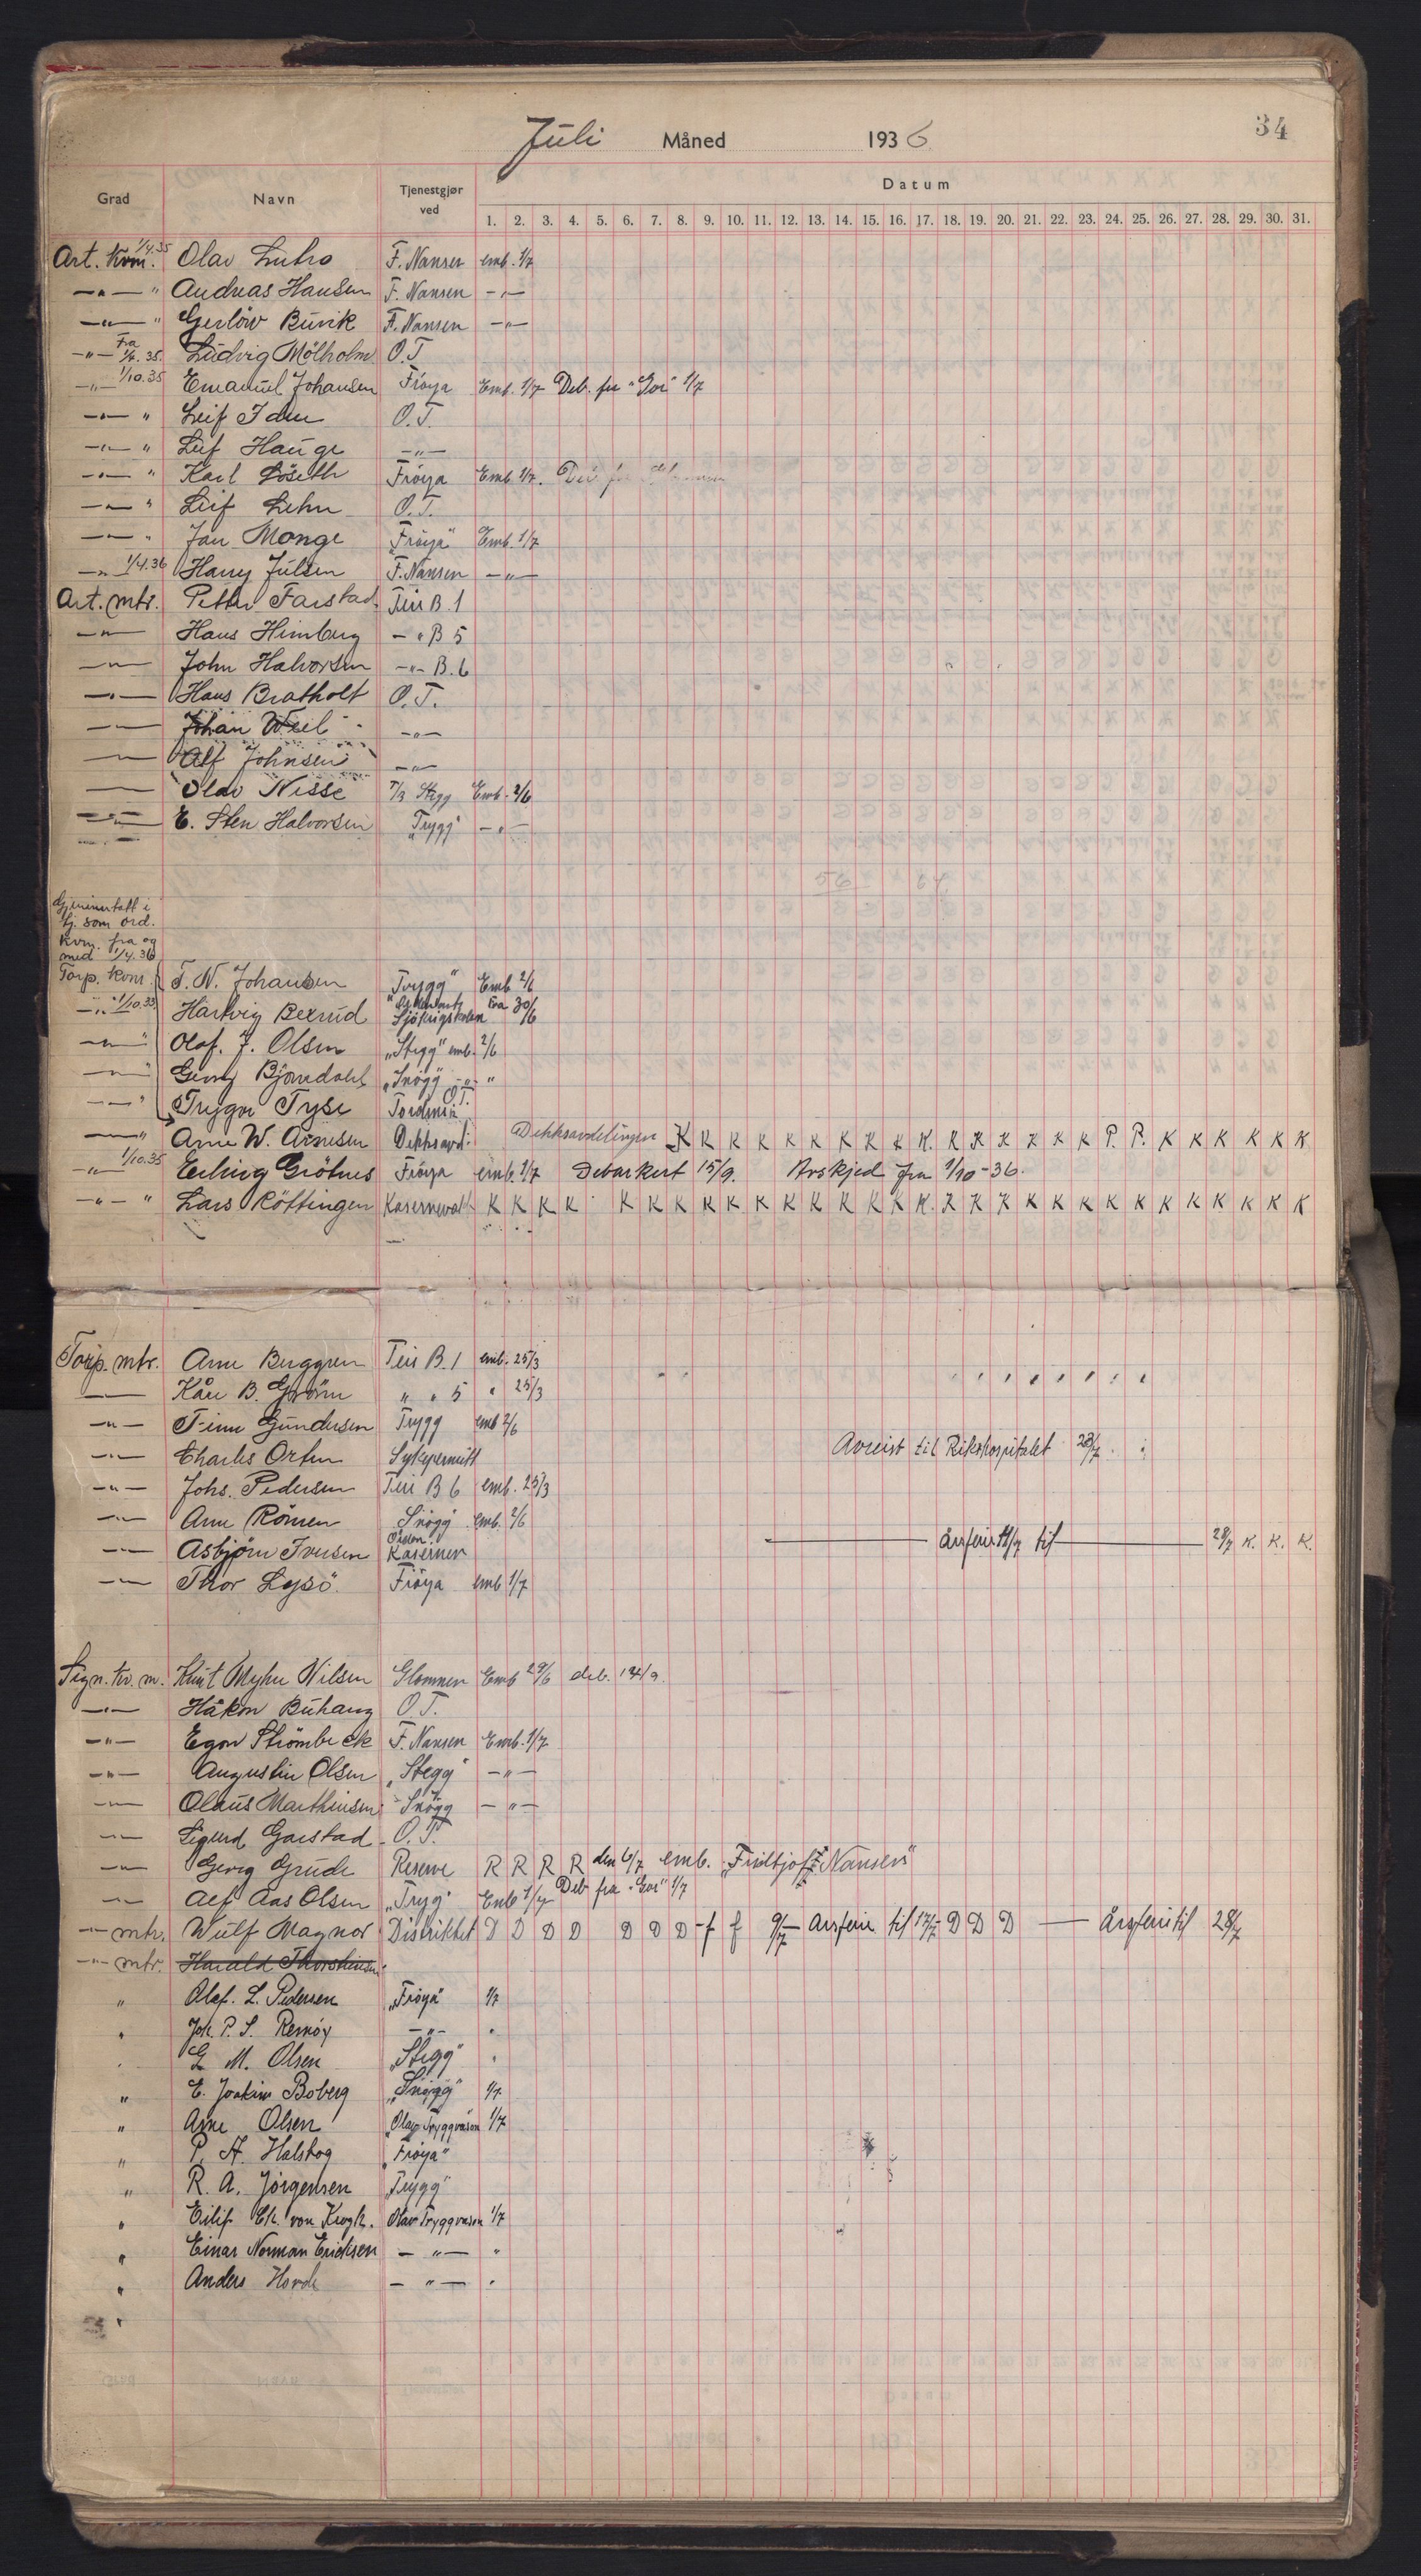 34
Juli Måned 1936
Grad Navn Tjenestgjør ved Datum
1. 2. 3. 4. 5. 6. 7. 8. 9. 10. 11. 12. 13. 14. 15. 16. 17. 18. 19. 20. 21. 22. 23. 24. 25. 26. 27. 28. 29. 30. 31.
Art. kvm. 1/4.35 Olav F. Nansen emb. 1/7
—"— " Andreas Hansen F. Nansen —"—
—"— " Burik F. Nansen —"—
—"— Fra 1/4.35. Ludvig Mölholm O.T
—"— 1/10.35 Emanuel Johansen Fröya Emb. 1/7 Deb. fra "Gor" 1/7
—"— " Leif Iden O.T.
—"— " Leif Hauge —"—
—"— " Karl Löseth Fröya Emb. 1/7.
—"— " Leif Lehn O.T.
—"— " Jan Monge "Fröya" Emb. 1/7
—"— 1/4.36 Harry Julsen F. Nansen —"—
Art. mtr. Petter Farstad Teis B.1
—"— Hans Himberg — " B 5
—"— John Halvorsen —"— B.6
—"— Hans Bratholt O.T.
—"— Johan Weel —"—
—"— Alf Johnsen —"—
—"— Olav Nisse T/3 Stegg Emb. 2/6
—"— E. Sten Halvorsen "Trygg" —"—
56 64
Gjeninntatt i
tj. som ord.
kvm. fra og
med 1/4.36
Torp. kvm. T. N. Johansen "Trygg" Emb 2/6
—"— 1/10.35 Hartvig Berrud Sjökrigsskolen Fra 30/6
—"— " Olaf. J. Olsen "Stegg" emb. 2/6
—"— " Georg Bjørndahl "Snögg" —"— "
—"— " Trygve Tyse Tordensk. O.T.
—"— " Arne W. Arnesen Dekksavd. Dekksavdelingen K K K K K K K K K K K K K K K K P. P. K K K K K K
—"— 1/10.35 Erling Grötnes Fröya emb. 1/7 Debarkert 15/9. Avskjed fra 1/10-36.
—"— " Lars Röttingen Kasernevakt K K K K K K K K K K K K K K K K K K K K K K K K K K K K K K
Torp. mtr. Arne Berggren Teis B.1 emb. 25/3
—"— Kåre B. Gjröm " " 5 " 25/3
—"— Finn Gundersen Trygg emb 2/6
—"— Charles Orten Sykepermitt Avreist til Rikshospitalet 23/7
—"— Johs. Pedersen Teis B 6 emb. 25/3
—"— Arne Römen Snögg emb. 2/6
—"— Asbjørn Iversen Kasernen årsferie 11/7 til 28/7 K. K. K.
—"— Thor Lysö. Fröya emb 1/7
Sign. kv. m. Knut Myhre Nilsen Glommen Emb 29/6 deb. 14/9.
—"— Håkon Buhaug O.T.
—"— Egon Strömbeck F. Nansen Emb. 1/7
—"— Augustin Olsen "Stegg" —"—
—"— Olaus Marthinsen Snögg —"—
—"— Sigurd Garstad O.T.
—"— Georg Grude Reserve R R R R den 6/7 emb. "Fridtjof Nansen"
—"— Alf Aas Olsen "Tryg" Emb 1/7 Deb fra "Gor" 1/7
—"— mtr. Wulf Magnor Distriktet D D D D D D D - f f 9/7 — Årsferie til 17/7 - D D D — Årsferie til 28/7
—"— mtr. Harald Thorstensen
" Olaf. L. Pedersen "Fröya" 1/7
" Joh. P. S. Remöy —"— "
" G M. Olsen "Stegg" "
" E. Joakim Boberg "Snögg" 1/7
" Arne Olsen "Olav Tryggvason 1/7
" P. A. Halskog "Fröya"
" R. A. Jörgensen "Trygg"
" Eilif Chr. von Krogh. Olav Tryggvason 1/7
" Einar Norman Ericksen — " — "
" Anders Horde — " — "
"